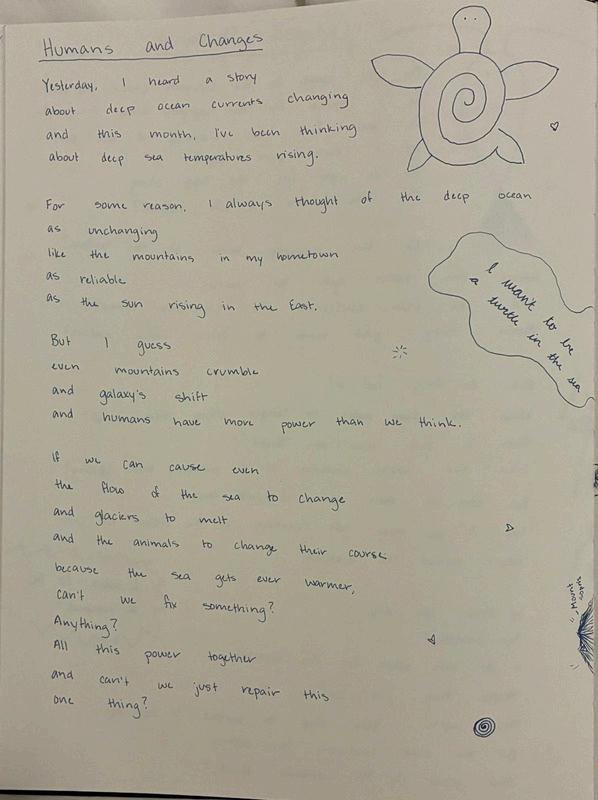 Humans and Changes
Yesterday, I heard a story
about deep ocean currents changing
and this month, I've been thinking
about deep sea temperatures rising.
For some reason, I always thought of the deep ocean
as unchanging
like the mountains in my hometown
as reliable
as the sun rising in the East.
I want to be
a turtle in the sea
But I guess
even mountains crumble
and galaxy's shift
and humans have more power than we think.
If we can cause even
the flow of the sea to change
and glaciers to melt
and the animals to change their course
because the sea gets ever warmer,
can't we fix something?
Anything?
All this power together
and can't we just repair this
one thing?
Mount